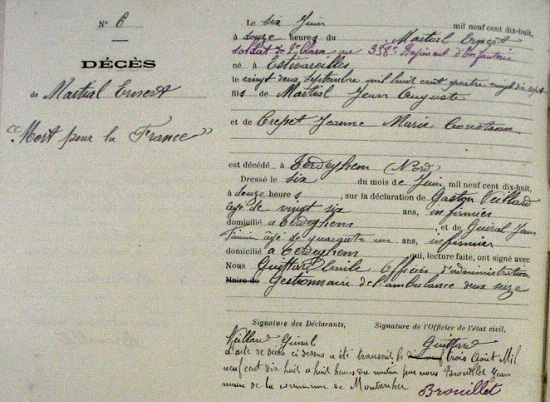 N° 6
DÉCÈS
de Martial Ernest
"Mort pour la France"
Le six Juin mil neuf cent dix-huit,
à douze heures du Martial Ernest
soldat de 2e Classe au 358e Régiment d'Infanterie
né à Estivareilles
le vingt deux septembre mil huit cent quatre vingt dix sept
fils de Martial Jean Auguste
et de Crepet Jeanne Marie
est décédé à Terdeghem (Nord)
Dressé le six du mois de Juin, mil neuf cent dix-huit,
à douze heures, sur la déclaration de Gaston Veillard
âgé de vingt six ans, infirmier
domicilié à Terdeghem, et de Guiral Jean
âgé de quarante un ans, infirmier
domicilié à Terdeghem qui, lecture faite, ont signé avec
Nous Guittard Emile Officier d'administration
Maire de Gestionnaire de l'ambulance deux seize
Signature des Déclarants, Signature de l'Officier de l'état civil,
Veillard Guiral Guittard
L'acte de décès ci dessus a été transcrit le trois Août Mil
neuf cent dix huit à huit heures du matin par nous Brouillet Jean
maire de la commune de Montarcher
Brouillet